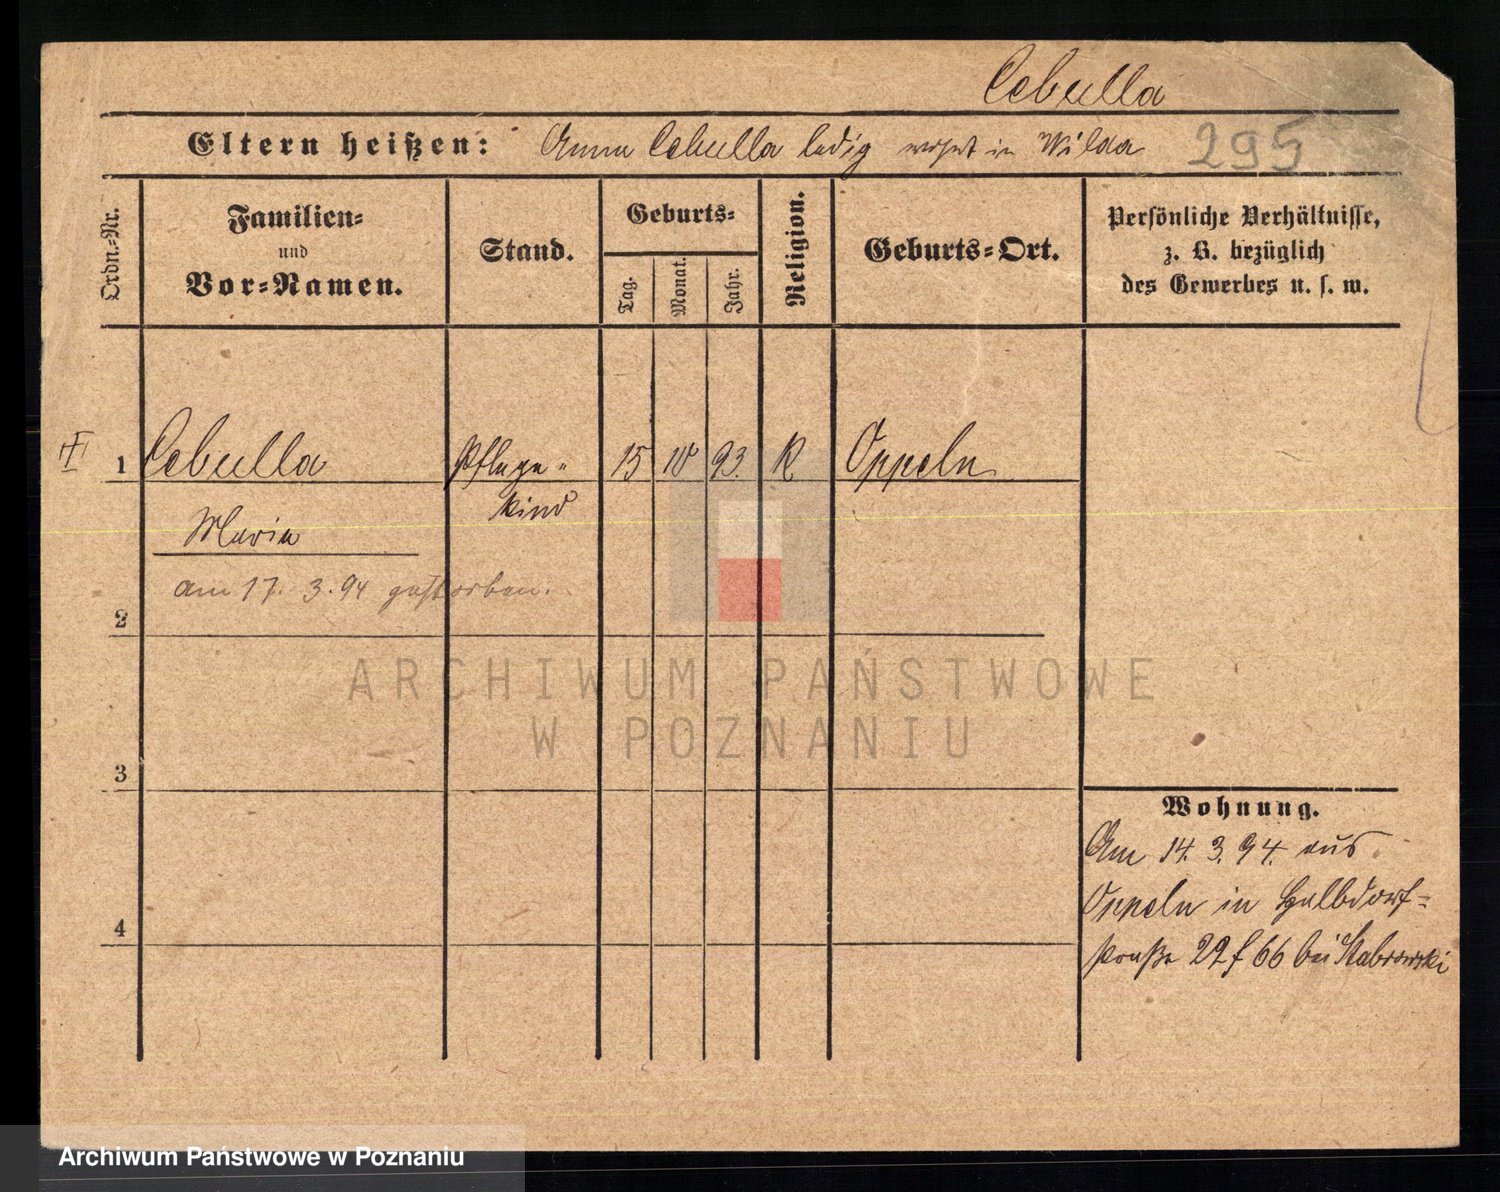 Cebulla
Eltern heißen: Anna Cebulla ledig wohnt in Wilda 295
Ordn.-Nr.
Familien-
und
Vor-Namen.
Stand.
Geburts-
Tag.
Monat.
Jahr.
Religion.
Geburts-Ort.
Persönliche Verhältnisse,
z. B. bezüglich
des Gewerbes u. s. w.
1 Cebulla Pflege- 15 10 93. K Oppeln
kind
Maria
am 17. 3. 94 gestorben.
2
ARCHIWUM PAŃSTWOWE
W POZNANIU
3
Wohnung.
Am 14. 3. 94. aus
Oppeln in Halbdorf-
straße 22 f 66 bei Stabrowski
4
Archiwum Państwowe w Poznaniu